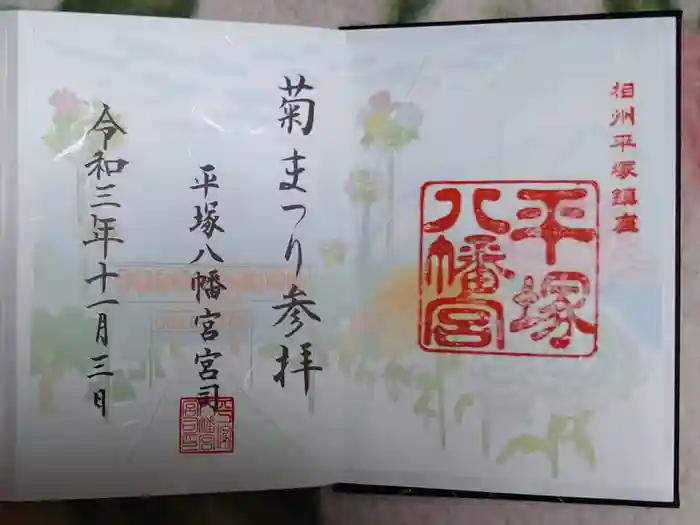 相州平塚鎮座
平塚
八幡宮
菊まつり参拝
平塚八幡宮宮司
令和三年十一月三日